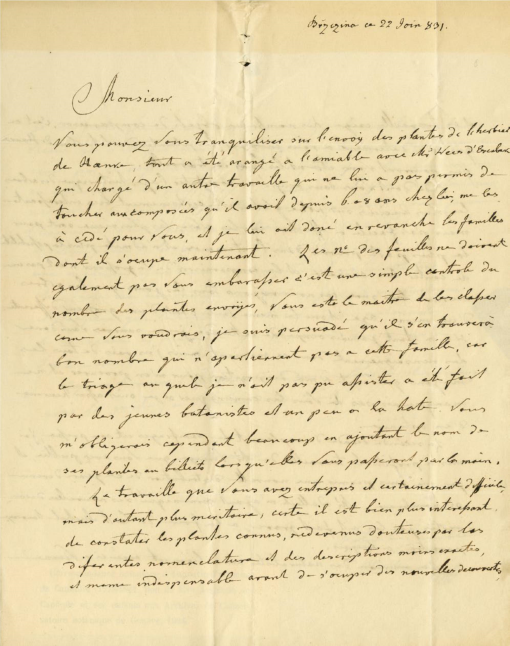 Brzezina ce 22 Juin 831.
Monsieur
Vous pouvez Vous tranquiliser sur l'envoy des plantes de l'herbier
de Haenke, tout a été arangé a l'amiable avec Mr Nees d'Esenbek
qui chargé d'un autre travaille qui ne lui a pas permis de
toucher aux composés qu'il avoit depuis 6 a 8 ans chez lui, me les
à cédé pour Vous, et je lui ait doné en revanche les familles
dont il s'ocupe maintenant. Les No des feuilles ne doivent
egalement pas Vous embarasser c'est une simple controle du
nombre des plantes envoyés, Vous este le maitre de les classer
come Vous voudrais, je suis persuadé qu'il s'en trouverà
bon nombre qui n'apartiennent pas a cette famille, car
le triage au quel je n'ait pas pu assister a été fait
par des jeunes botanistes et un peu a la hate. Vous
m'obligerais cependant beaucoup en ajoutant le nom de
ses plantes en billiets lorsqu'elles Vous passeront par la main.
La travaille que Vous avez entrepris et certainement difficile,
mais d'autant plus meritoire, certe il est bien plus interessant
de constater les plantes connus, redevenus douteuses par les
diferentes nomenclature et des descriptions moins exactes,
et meme indispensable avant de s'ocuper des nouvelles decouvertes,